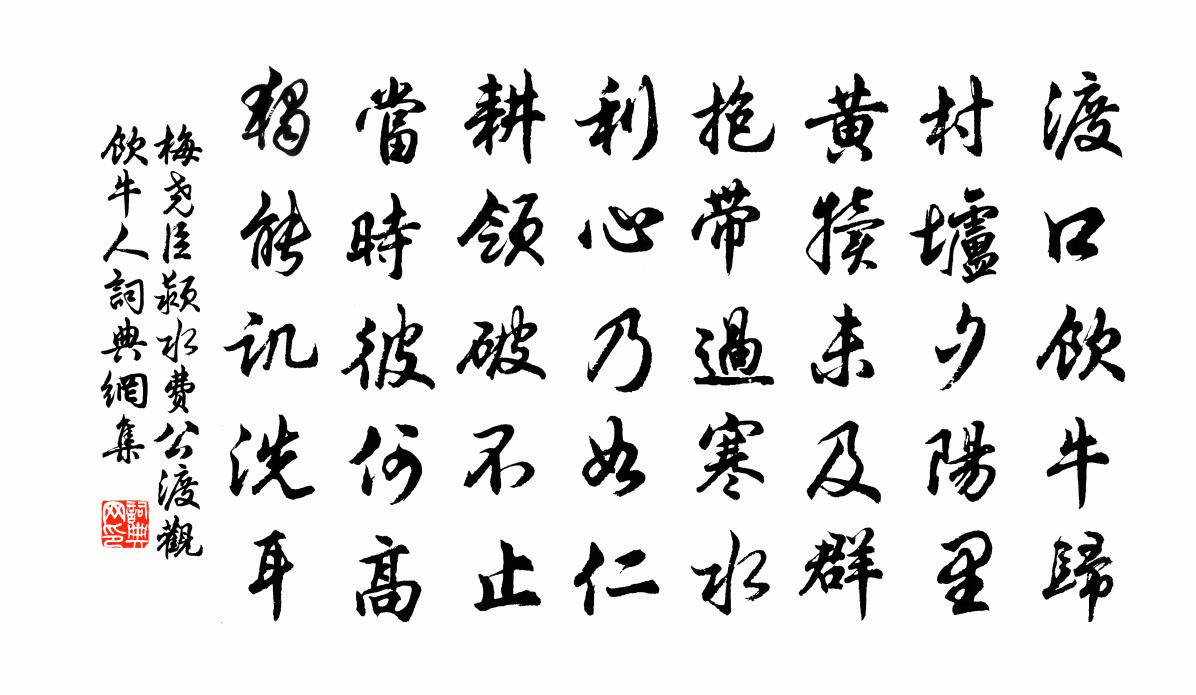 渡口飲牛歸
村壚夕陽里
黃犢未及群
抱帶過寒水
利心乃如仁
耕領破不止
當時彼何高
獨能訊洗耳
梅堯臣潁水費公渡觀
飲牛人詞典網集
詞典
网印